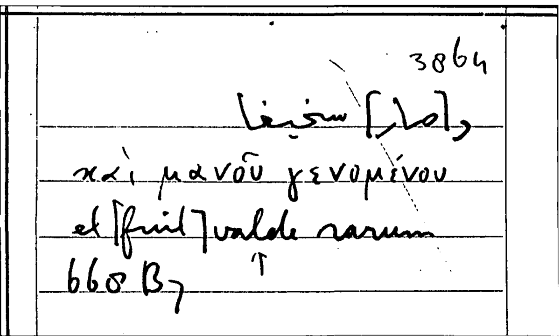 3864
و[صار] سخيفا
καὶ μανοῦ γενομένου
et [fuit] valde rarum
↑
668 B7